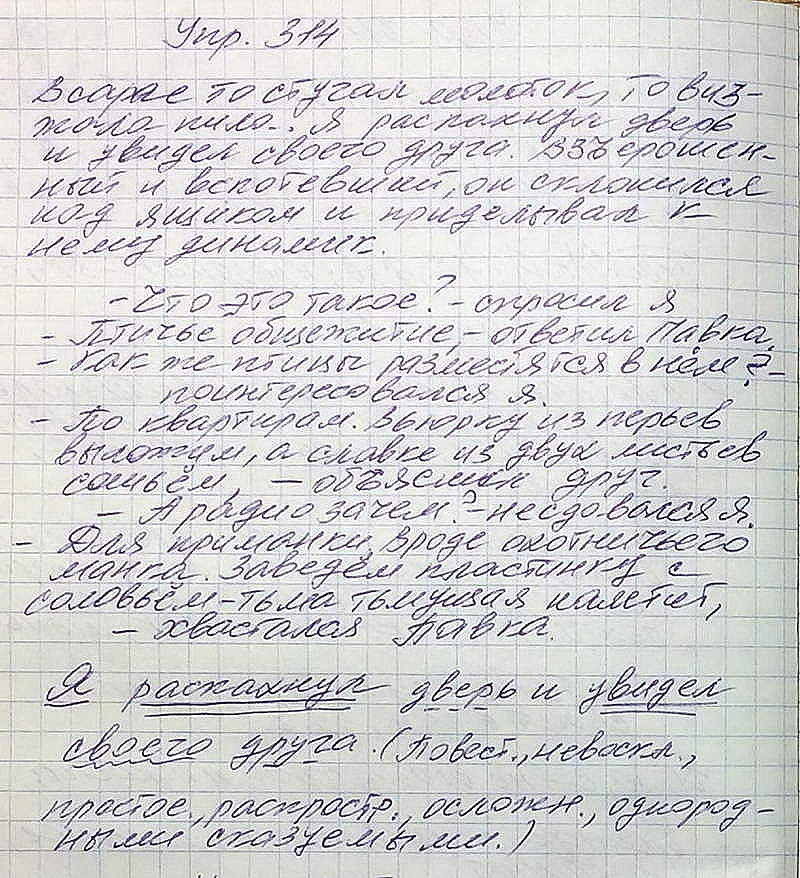 Упр. 314
В сарае то стучал молоток, то виз-
жала пила. Я распахнул дверь
и увидел своего друга. Взъерошен-
ный и вспотевший, он склонился
над ящиком и приделывал к
нему динамик.
- Что это такое? - спросил я
- Птичье общежитие, - ответил Павка.
- Как же птицы разместятся в нём? -
поинтересовался я.
- По квартирам. Вьюрку из перьев
выложим, а славке из двух листьев
сошьём, - объяснил друг.
- А радио зачем? - не сдавался я.
- Для приманки, вроде охотничьего
манка. Заведём пластинку с
соловьём - тьма тьмущая налетит,
- хвастался Павка.
Я распахнул дверь и увидел
своего друга. (Повест., невоскл.,
простое, распростр., осложн., однород-
ными сказуемыми.)